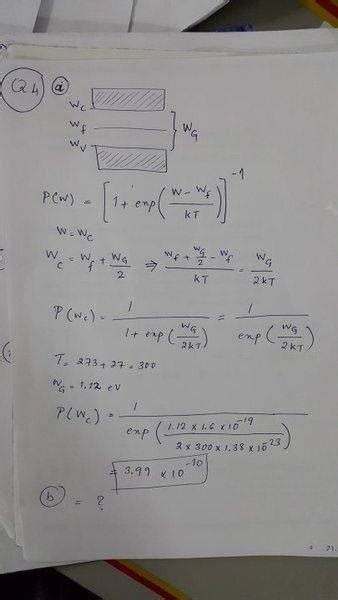 Q4 a
Wc
Wf
WG
Wv
P(W) = [1 + exp((W - Wf)/KT)]^-1
W = Wc
Wc = Wf + WG/2 ⇒ (Wf + WG/2 - Wf)/KT = WG/2KT
P(Wc) = 1/(1 + exp(WG/2KT)) = 1/exp(WG/2KT)
T = 273 + 27 = 300
WG = 1.12 eV
P(Wc) = 1/exp((1.12 x 1.6 x 10^-19)/(2 x 300 x 1.38 x 10^-23))
= 3.99 x 10^-10
b = ?